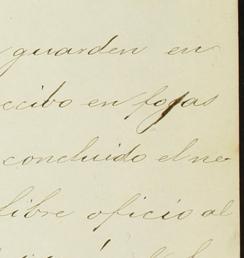 guarden en
ecibo en fojas
concluido el ne
libre oficio al